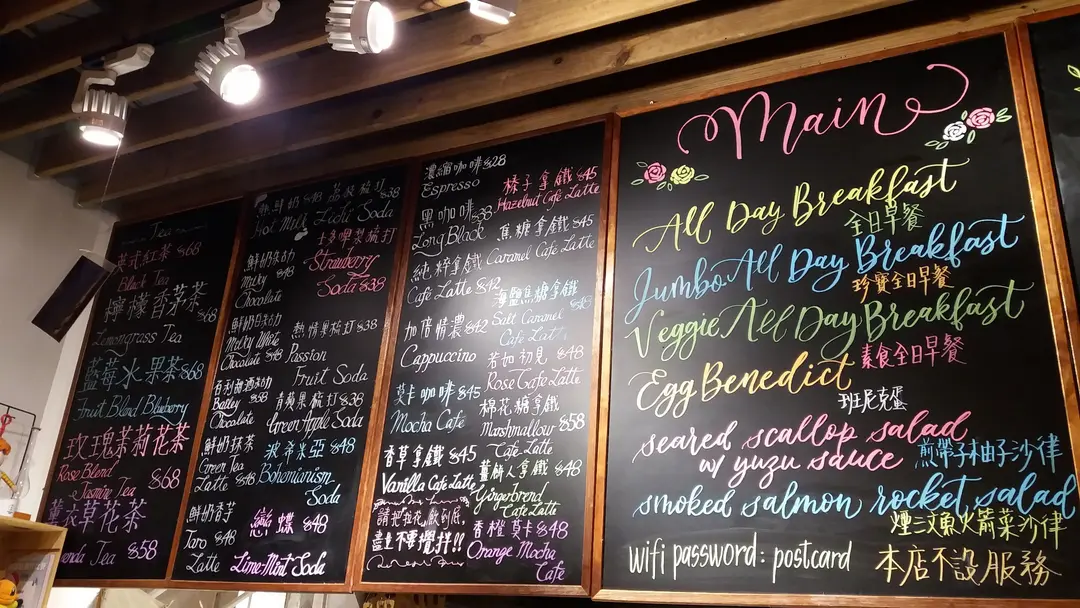 Tea
英式紅茶 $68
Black Tea
檸檬香茅茶 $68
Lemongrass Tea
藍莓水果茶 $68
Fruit Blend Blueberry
玫瑰茉莉花茶
Rose Blend $68
Jasmine Tea
薰衣草花茶
Tea $58
熱鮮奶 $48
Hot Milk
鮮奶朱古力
Milky $48
Chocolate
鮮奶白朱古力
Milky White
Chocolate $48
百利甜酒朱古力
Bailey $58
Chocolate
鮮奶抹茶
Green Tea
Latte $48
鮮奶香芋
Taro $48
Latte
荔枝梳打 $38
Lichi Soda
士多啤梨梳打
Strawberry
Soda $38
熱情果梳打 $38
Passion
Fruit Soda
青蘋果梳打 $38
Green Apple Soda
波希米亞 $48
Bohemianism
Soda
戀蝶 $48
Lime-Mint Soda
濃縮咖啡 $28
Espresso
黑咖啡 $38
Long Black
純粹拿鐵
Café Latte $42
加倍情濃 $42
Cappuccino
莫卡咖啡 $45
Mocha Café
香草拿鐵 $45
Vanilla Café Latte
請把拉花飲到底,
盡量不要攪拌!!
榛子拿鐵 $45
Hazelnut Café Latte
焦糖拿鐵 $45
Caramel Café Latte
海鹽焦糖拿鐵
Salt Caramel $48
Café Latte
若如初見 $48
Rose Café Latte
棉花糖拿鐵
Marshmallow $58
Café Latte
薑餅人拿鐵 $48
Gyngerbrend
Café Latte
香橙莫卡 $48
Orange Mocha
Café
Main
All Day Breakfast
全日早餐
Jumbo All Day Breakfast
珍寶全日早餐
Veggie All Day Breakfast
素食全日早餐
Egg Benedict
班尼克蛋
seared scallop salad
w/ yuzu sauce 煎帶子柚子沙律
smoked salmon rocket salad
煙三文魚火箭菜沙律
wifi password: postcard 本店不設服務